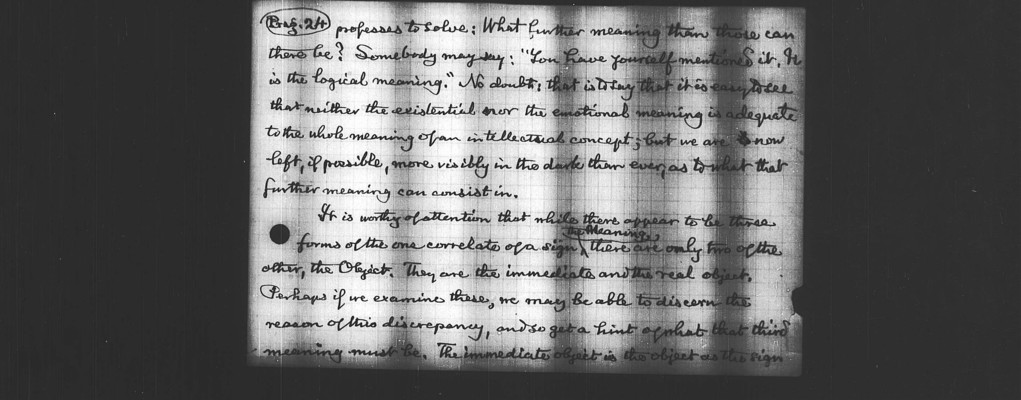 Prag. 24 professes to solve: What further meaning than those can
there be? Somebody may say: "You have yourself mentioned it. It
is the logical meaning." No doubt: that is to say that it is easy to see
that neither the existential nor the emotional meaning is adequate
to the whole meaning of an intellectual concept; but we are now
left, if possible, more visibly in the dark than ever, as to what that
further meaning can consist in.
It is worthy of attention that while there appear to be three
the Meaning,
forms of the one correlate of a sign, there are only two of the
other, the Object. They are the immediate and the real object.
Perhaps if we examine these, we may be able to discern the
reason of this discrepancy, and so get a hint of what that third
meaning must be. The immediate object is the object as the sign